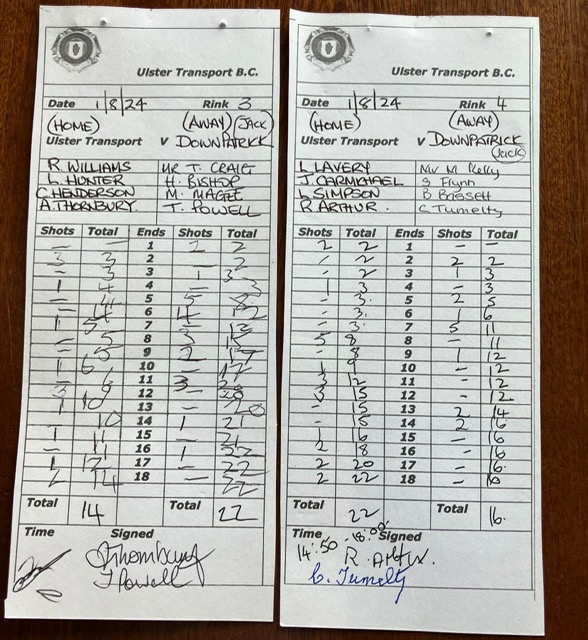 Ulster Transport B.C.
Date 1/8/24 Rink 3
(HOME) (AWAY) (JACK)
Ulster Transport V DOWNPATRICK
R. WILLIAMS MR T. CRAIG
L. HUNTER H. BISHOP
C. HENDERSON M. MAGEE
A. THORNBURY. T. POWELL
Shots Total Ends Shots Total
— — 1 2 2
3 3 2 — 2
— 3 3 1 3
1 4 4 — 3
— 4 5 5 8
— 4 6 4 12
1 5 7 — 12
— 5 8 3 15
— 5 9 2 17
1 6 10 — 17
— 6 11 3 20
3 9 12 — 20
1 10 13 — 20
— 10 14 1 21
1 11 15 — 21
— 11 16 1 22
1 12 17 — 22
2 14 18 — 22
Total 14 Total 22
Time Signed
AThornbury
T Powell
Ulster Transport B.C.
Date 1/8/24 Rink 4
(HOME) (AWAY)
Ulster Transport V DOWNPATRICK
(Jack)
L LAVERY Mr M Kelly
J. CARMICHAEL S Flynn
L SIMPSON B Bassett
R ARTHUR. C Tumelty
Shots Total Ends Shots Total
2 2 1 — —
- 2 2 2 2
- 2 3 1 3
1 3 4 — 3
- 3. 5 2 5
- 3. 6 1 6
- 3. 7 5 11
5 8 8 — 11
- 8 9 1 12
1 9 10 — 12
3 12 11 — 12
3 15 12 — 12
- 15 13 2 14
- 15 14 2 16
1 16 15 — 16
2 18 16 — 16
2 20 17 — 16.
2 22 18 — 16
Total 22 Total 16.
Time 14:50 -18:00. Signed
R. Arthur.
C. Tumelty